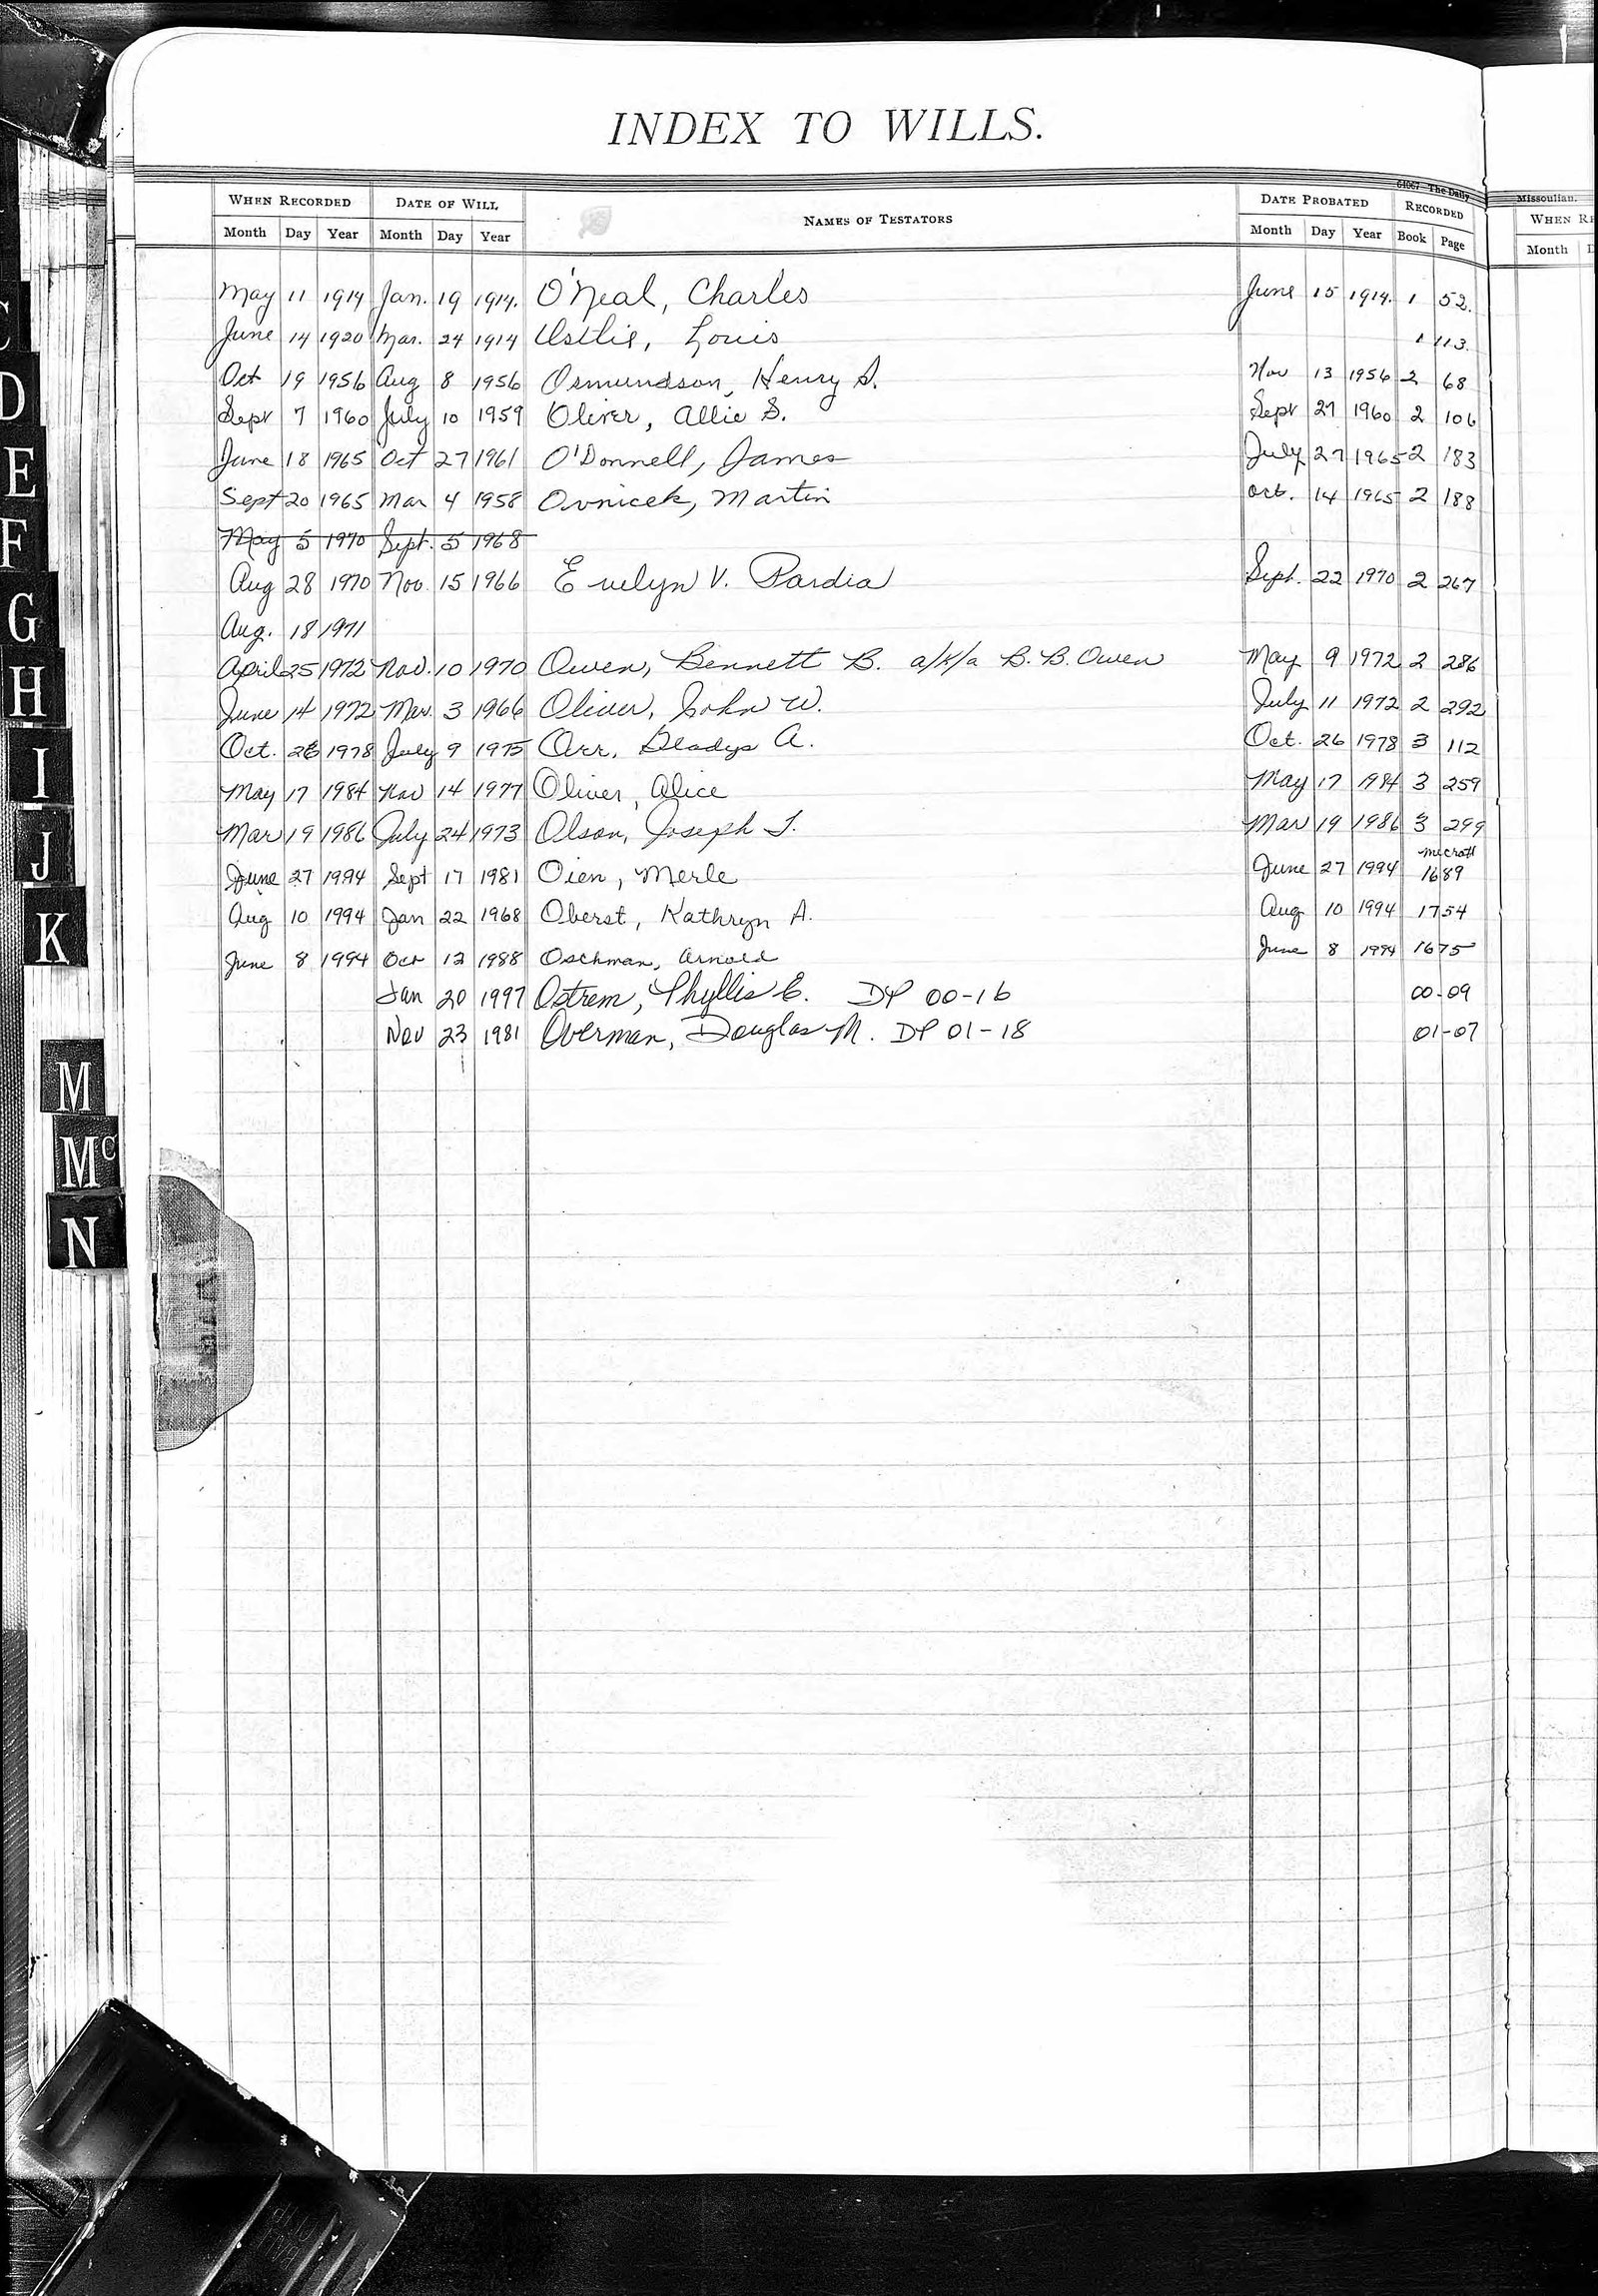 INDEX TO WILLS.
64067—The Daily Missoulian.
WHEN RECORDED DATE OF WILL NAMES OF TESTATORS DATE PROBATED RECORDED WHEN RE
Month Day Year Month Day Year Month Day Year Book Page Month D
May 11 1914 Jan. 19 1914. O'Neal, Charles June 15 1914. 1 52.
June 14 1920 Mar. 24 1914 Ostlie, Louis 1 113.
Oct 19 1956 Aug 8 1956 Osmundson, Henry S. Nov 13 1956 2 68
Sept 7 1960 July 10 1959 Oliver, Allie S. Sept 27 1960 2 106
June 18 1965 Oct 27 1961 O'Donnell, James July 27 1965 2 183
Sept 20 1965 Mar 4 1958 Ovnicek, Martin Oct. 14 1965 2 188
May 5 1970 Sept. 5 1968
Aug 28 1970 Nov. 15 1966 Evelyn V. Pardia Sept. 22 1970 2 267
Aug. 18 1971
April 25 1972 Nov. 10 1970 Owen, Bennett B. a/k/a B. B. Owen May 9 1972 2 286
June 14 1972 Mar. 3 1966 Oliver, John W. July 11 1972 2 292
Oct. 26 1978 July 9 1975 Orr, Gladys A. Oct. 26 1978 3 112
May 17 1984 Nov 14 1977 Oliver, Alice May 17 1984 3 259
Mar 19 1986 July 24 1973 Olson, Joseph T. Mar 19 1986 3 299
June 27 1994 Sept 17 1981 Oien, Merle June 27 1994 1689
Aug 10 1994 Jan 22 1968 Oberst, Kathryn A. Aug 10 1994 1754
June 8 1994 Oct 12 1988 Oschman, Arnold June 8 1994 1675
Jan 20 1997 Ostrem, Phyllis E. DP 00-16 00-09
Nov 23 1981 Overman, Douglas M. DP 01-18 01-07
C
D
E
F
G
H
I
J
K
M
Mc
N